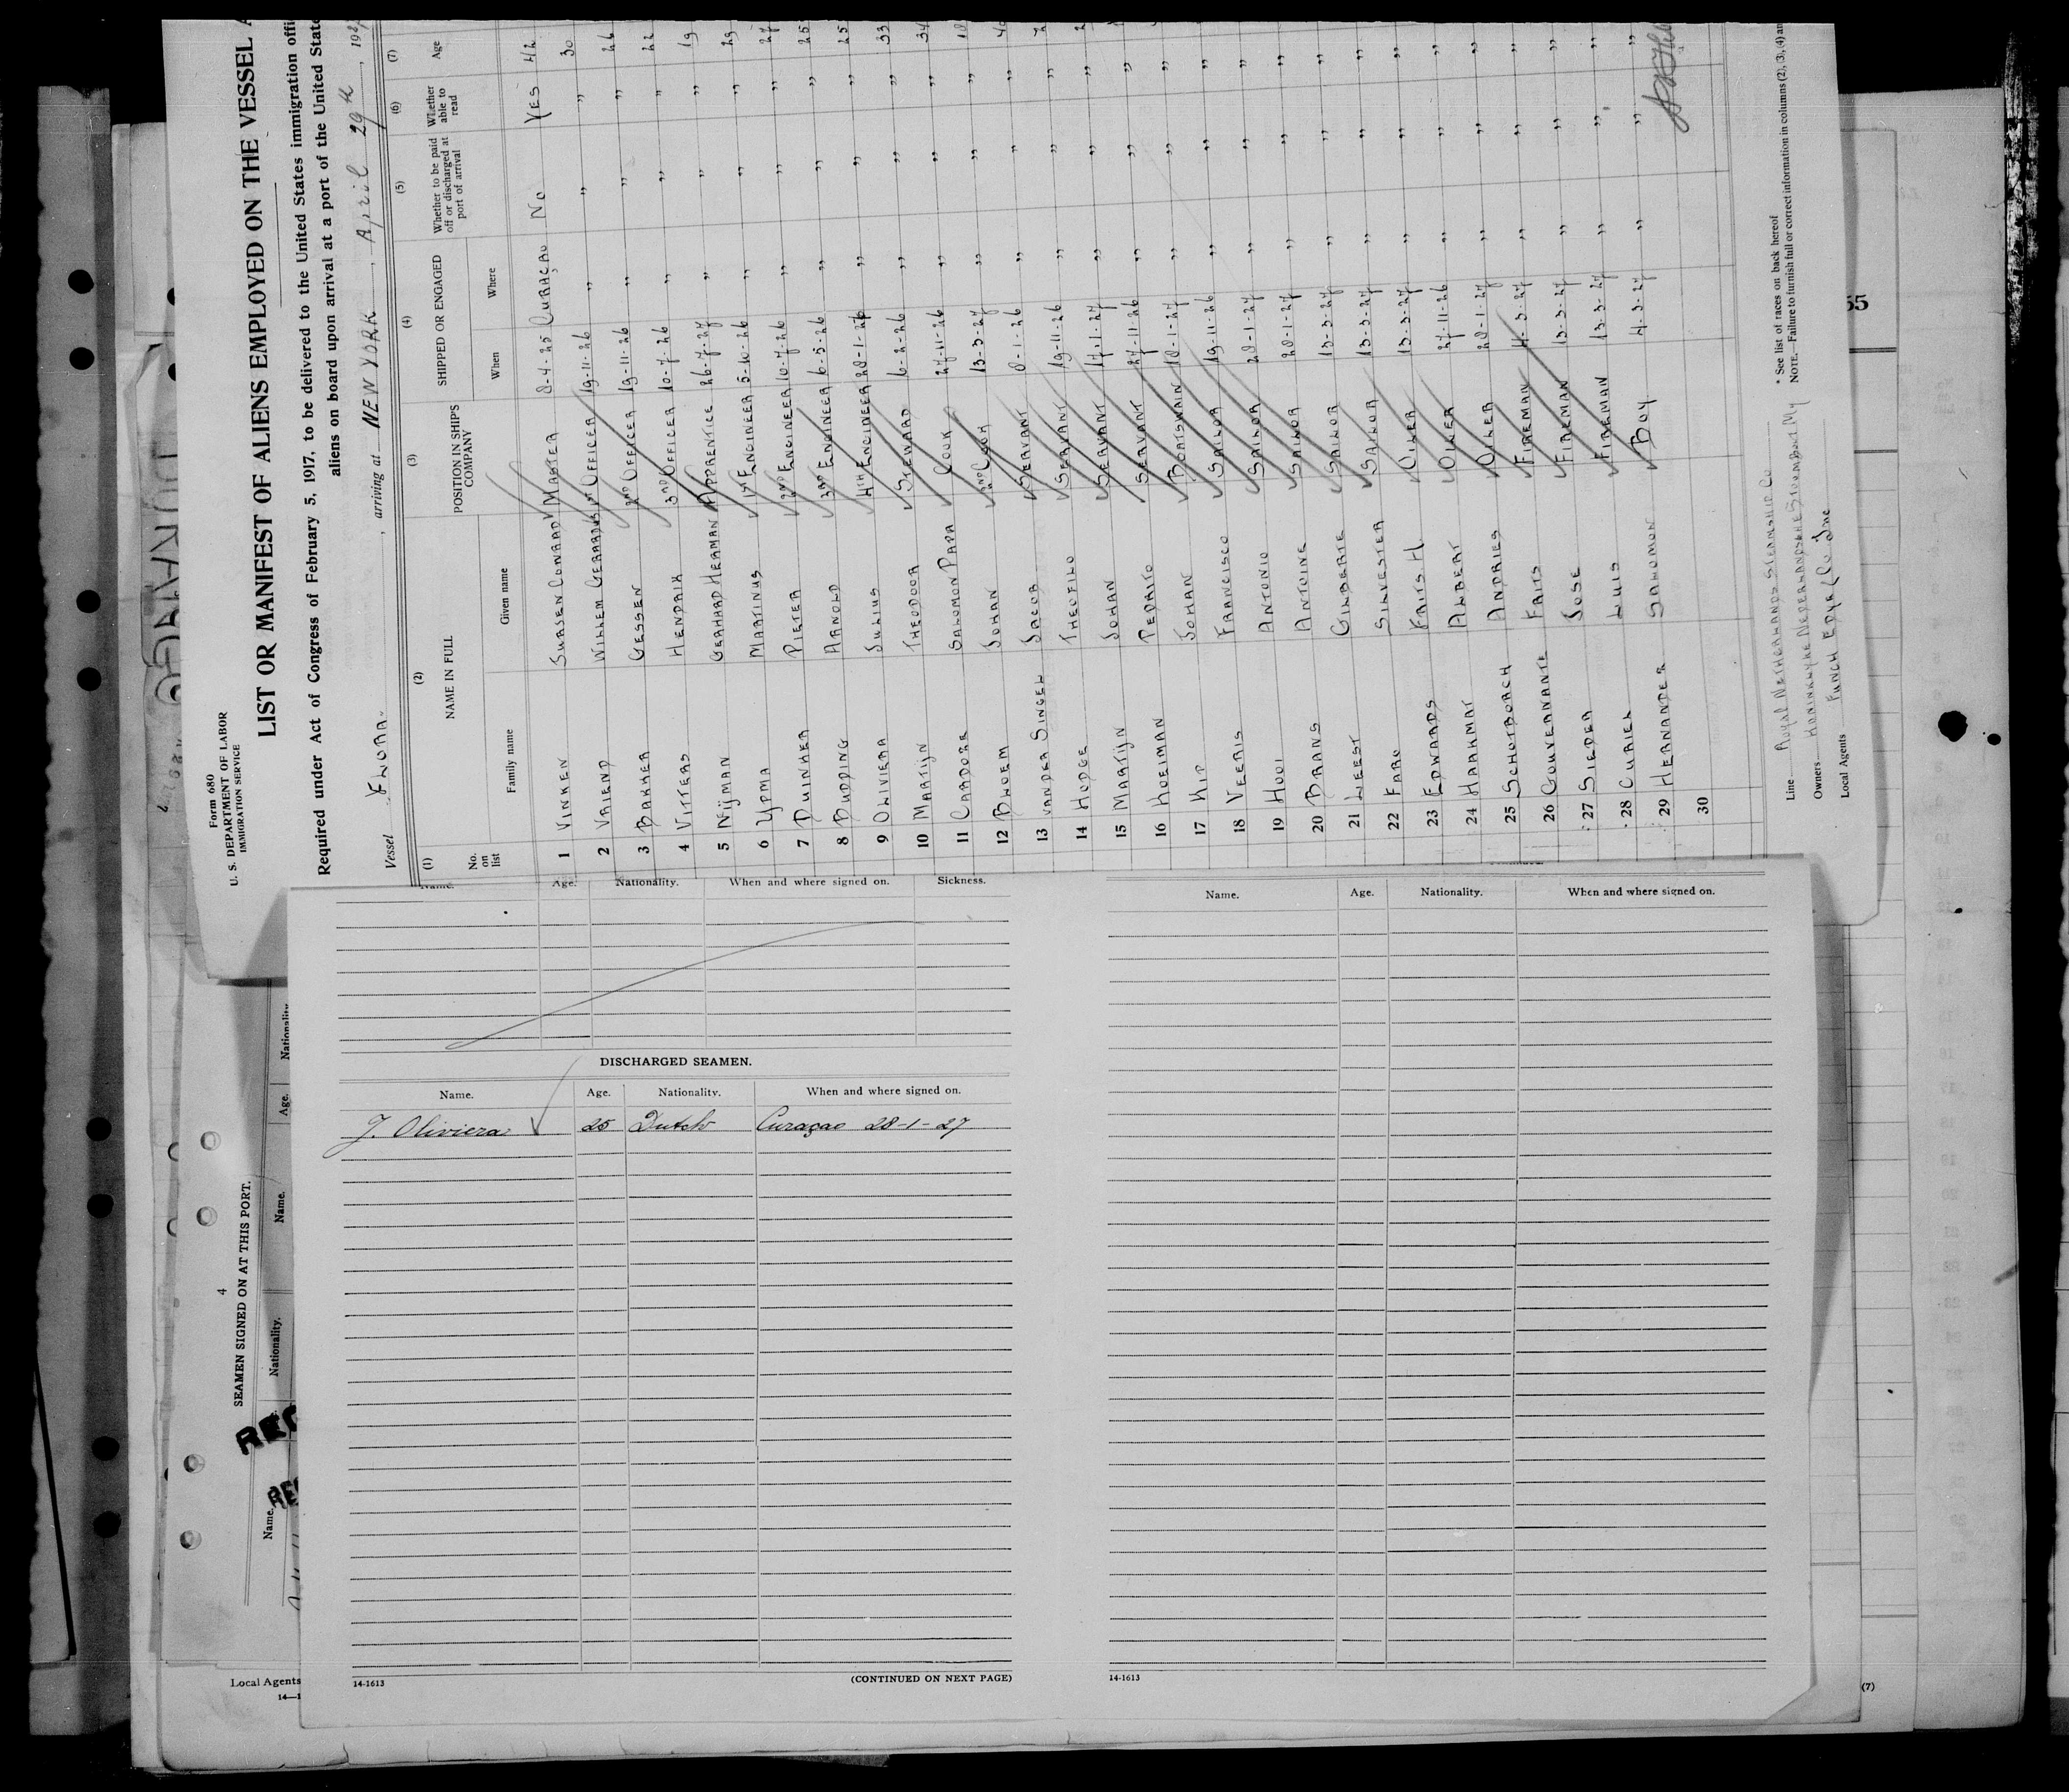 Form 680
U. S. DEPARTMENT OF LABOR
IMMIGRATION SERVICE
LIST OR MANIFEST OF ALIENS EMPLOYED ON THE VESSEL A
Required under Act of Congress of February 5, 1917, to be delivered to the United States immigration offi
aliens on board upon arrival at a port of the United State
Vessel FLORA , arriving at NEW YORK , April 29th , 192
(1) (2) (3) (4) (5) (6) (7)
No. on list NAME IN FULL POSITION IN SHIP'S COMPANY SHIPPED OR ENGAGED Whether to be paid off or discharged at port of arrival Whether able to read Age
Family name Given name When Where
1 VINKEN JURJEN CONRAD MASTER 8-4-25 CURAÇAO No YES 42
2 VRIEND WILLEM GERARDUS 1ST OFFICER 19-11-26 " " " 30
3 BAKKER GESSEN 2ND OFFICER 19-11-26 " " " 26
4 VITTERS HENDRIK 3RD OFFICER 10-7-26 " " " 22
5 NIJMAN GERHARD HERMAN APPRENTICE 26-7-27 " " " 19
6 YPMA MARTINUS 1ST ENGINEER 5-10-26 " " " 29
7 DUINKER PIETER 2ND ENGINEER 10-7-26 " " " 27
8 BUDDING ARNOLD 3RD ENGINEER 6-5-26 " " " 25
9 OLIVIERA JULIUS 4TH ENGINEER 28-1-27 " " " 25
10 MARTIJN THEODOOR STEWARD 6-2-26 " " " 33
11 CARDORE SALOMON PAPA COOK 27-11-26 " " " 34
12 BLOEM JOHAN 2ND COOK 13-3-27 " " " 18
13 VANDER SINGEL JACOB SERVANT 8-1-26 " " " 40
14 HODGE THEOFILO SERVANT 19-11-26 " " "
15 MARTIJN JOHAN SERVANT 17-1-27 " " "
16 KOEIMAN PEDRITO SERVANT 27-11-26 " " "
17 KIP JOHAN BOATSWAIN 18-1-27 " " "
18 VEERIS FRANCISCO SAILOR 19-11-26 " " "
19 HOOI ANTONIO SAILOR 28-1-27 " " "
20 BRANS ANTOINE SAILOR 28-1-27 " " "
21 LEEST GILBERTE SAILOR 13-3-27 " " "
22 FARO SILVESTER SAILOR 13-3-27 " " "
23 EDWARDS FRITS H. OILER 13-3-27 " " "
24 HAAKMAT ALBERT OILER 27-11-26 " " "
25 SCHOTBORCH ANDRIES OILER 28-1-27 " " "
26 GOUVERNANTE FRITS FIREMAN 4-3-27 " " "
27 SIEDER JOSE FIREMAN 13-3-27 " " "
28 CURIEL LUIS FIREMAN 13-3-27 " " "
29 HERNANDER SALOMON BOY 4-3-27 " " "
30
Line ROYAL NETHERLANDS STEAMSHIP Co
Owners KONINKLYKE NEDERLANDSCHE STOOMBOOT MY
Local Agents FUNCH EDYE & Co Inc
* See list of races on back hereof
NOTE.—Failure to furnish full or correct information in columns (2), (3), (4) an
55
Name. Age. Nationality. When and where signed on. Sickness.
DISCHARGED SEAMEN.
Name. Age. Nationality. When and where signed on.
J. Oliviera 25 Dutch Curaçao 28-1-27
14-1613 (CONTINUED ON NEXT PAGE)
Name. Age. Nationality. When and where signed on.
14-1613
4
SEAMEN SIGNED ON AT THIS PORT.
Name. Nationality. Name. Age. Nationality
REC
Local Agents
14—1
(7)